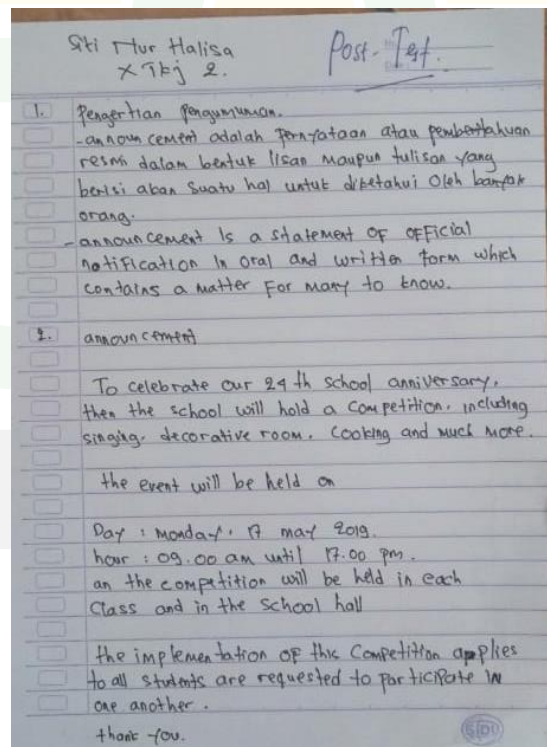 Siti Nur Halisa
X Tkj 2.
Post-Test.
1. Pengertian Pengumuman.
-announcement adalah Pernyataan atau pemberitahuan
resmi dalam bentuk lisan maupun tulisan yang
berisi akan suatu hal untuk diketahui oleh banyak
orang.
-announcement Is a statement OF OFFicial
notiFication In oral and written form which
contains a matter For many to know.
2. announcement
To celebrate our 24 th school anniversary,
then the school will hold a competition, including
singing, decorative room, cooking and much more.
the event will be held on
Day : Monday, 17 may 2019.
hour : 09.00 am until 17.00 pm.
an the competition will be held in each
Class and in the school hall
the implementation OF this Competition applies
to all students are requested to participate in
one another.
thank you.
SIDU